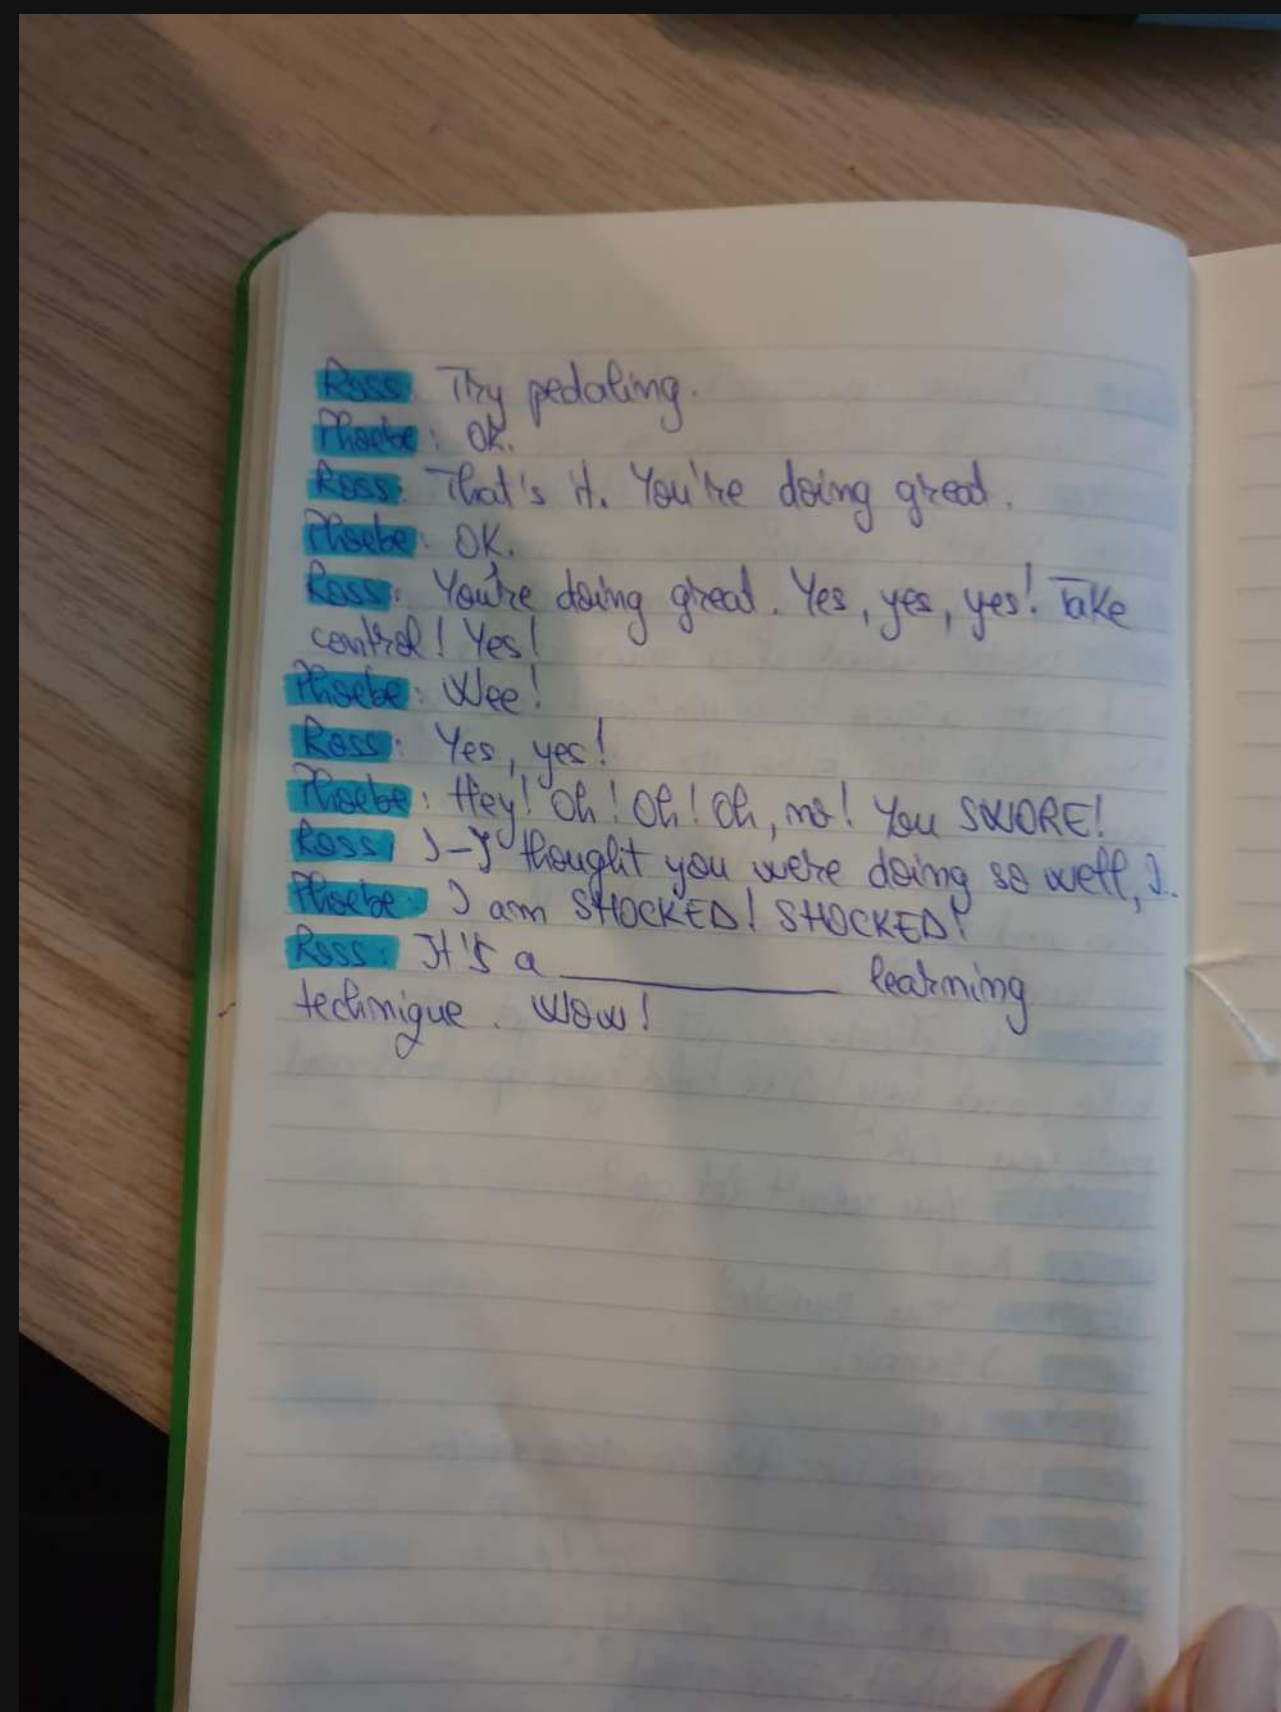 Ross: Try pedaling.
Phoebe: OK.
Ross: That's it. You're doing great.
Phoebe: OK.
Ross: You're doing great. Yes, yes, yes! Take
control! Yes!
Phoebe: Wee!
Ross: Yes, yes!
Phoebe: Hey! Oh! Oh! Oh, no! You SWORE!
Ross: I-I thought you were doing so well, I.
Phoebe: I am SHOCKED! SHOCKED!
Ross: It's a __________ learning
technique. Wow!